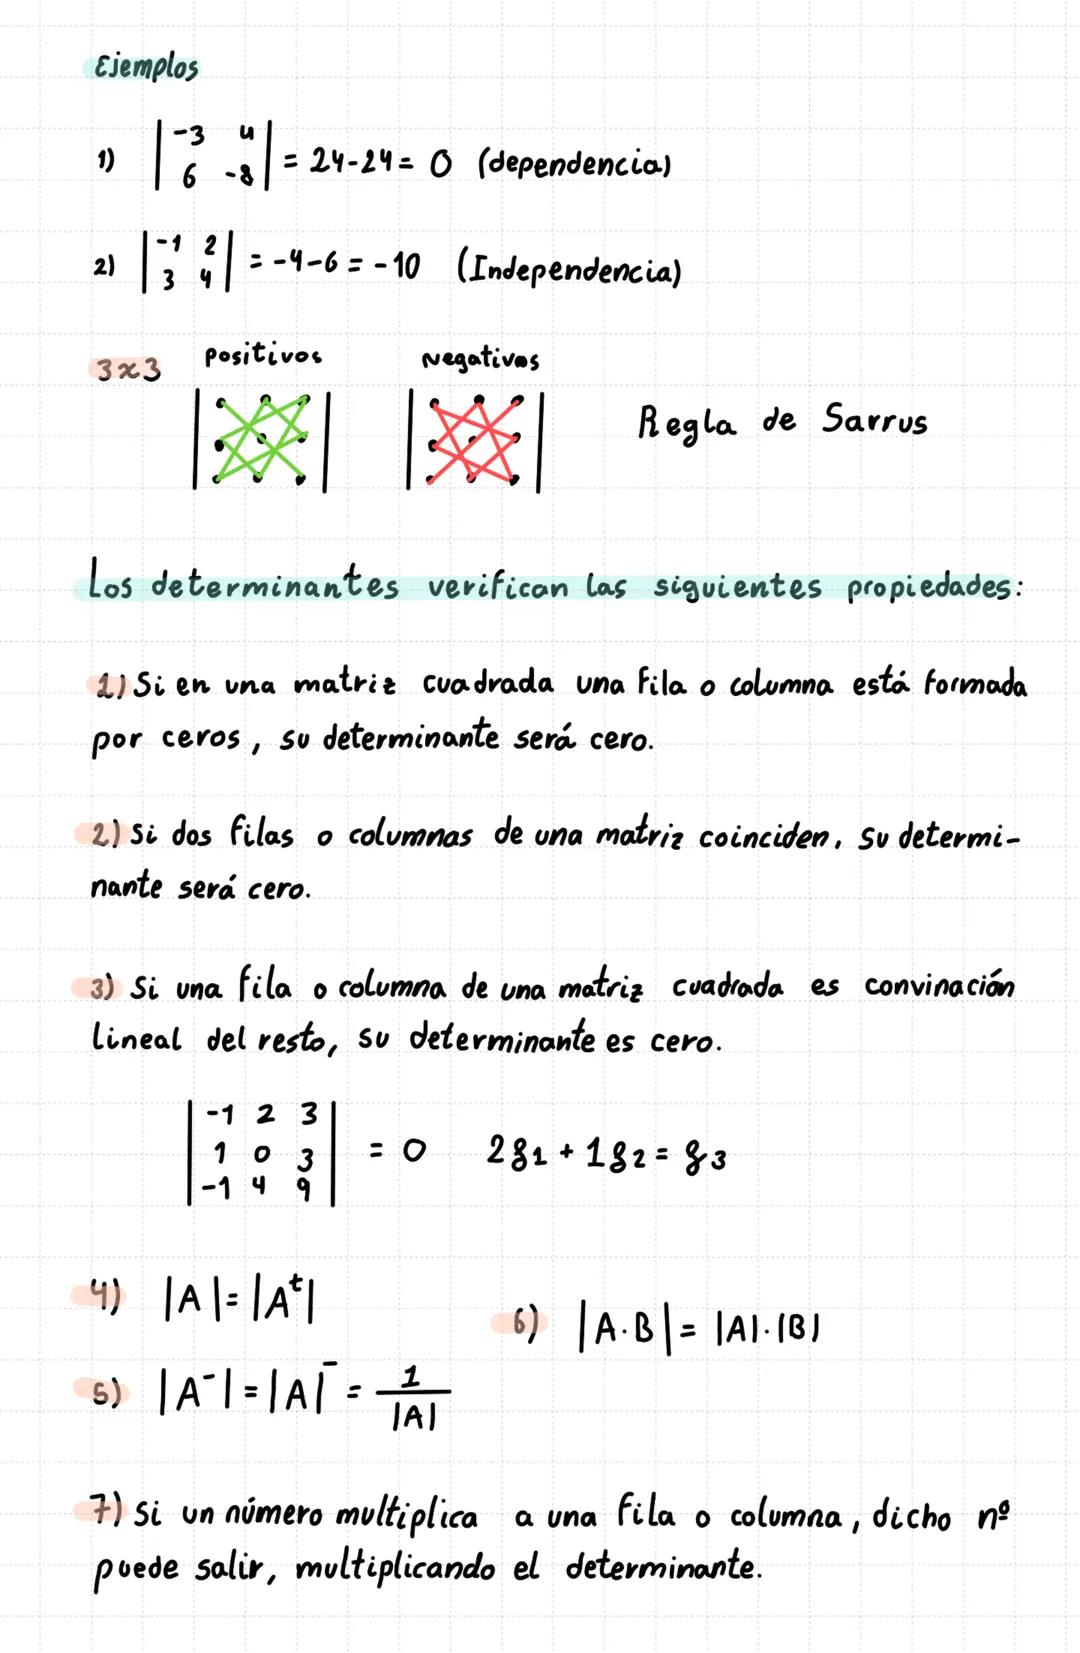 Ejemplos
1) | -3 4 | = 24-24 = 0 (dependencia)
| 6 -8 |
2) | -1 2 | = -4-6 = -10 (Independencia)
| 3 4 |
3x3 positivos negativos
Regla de Sarrus
Los determinantes verifican las siguientes propiedades:
1) Si en una matriz cuadrada una fila o columna está formada
por ceros, su determinante será cero.
2) Si dos filas o columnas de una matriz coinciden, su determi-
nante será cero.
3) Si una fila o columna de una matriz cuadrada es convinación
lineal del resto, su determinante es cero.
| -1 2 3 |
| 1 0 3 | = 0 2f1 + 1f2 = f3
| -1 4 9 |
4) |A| = |Aᵗ|
6) |A·B| = |A|·|B|
5) |A⁻| = |A|⁻ = 1/|A|
7) Si un número multiplica a una fila o columna, dicho nº
puede salir, multiplicando el determinante.